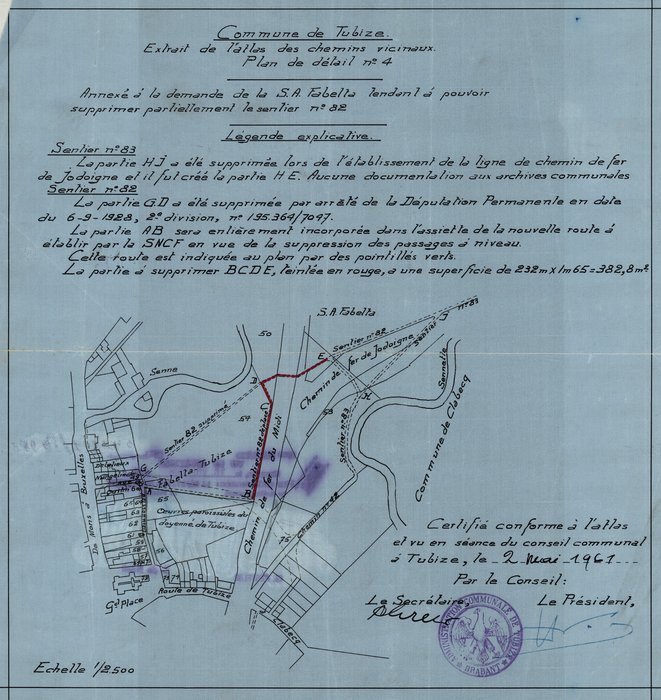 Commune de Tubize.
Extrait de l'atlas des chemins vicinaux.
Plan de détail n° 4
Annexé à la demande de la S.A. Fabelta tendant à pouvoir
supprimer partiellement le sentier n° 82
Légende explicative.
Sentier n° 83
La partie HJ a été supprimée lors de l'établissement de la ligne de chemin de fer
de Jodoigne et il fut créé la partie HE. Aucune documentation aux archives communales
Sentier n° 82
La partie GD a été supprimée par arrêté de la Députation Permanente en date
du 6-9-1928, 2e division, n° 195.364/7097.
La partie AB sera entièrement incorporée dans l'assiette de la nouvelle route à
établir par la SNCF en vue de la suppression des passages à niveau.
Cette route est indiquée au plan par des pointillés verts.
La partie à supprimer BCDE, teintée en rouge, a une superficie de 232m x 1m65 = 382,8 m²
S.A. Fabelta
50
Sentier n° 82
n° 83
J
E
Sentier
Chemin de fer de Jodoigne
Senne
D
H
Sennette
C
Sentier 82 supprimé
57
53
Sentier n° 83
Commune de Clabecq
Chemin de fer du Midi
G
Fabelta-Tubize
A
B
De Mons à Bruxelles
55
Oeuvres paroissiales du
doyenné de Tubize
Chemin n° 42
56
75
Route de Tubize
Clabecq
Gd Place
Certifié conforme à l'atlas
et vu en séance du conseil communal
à Tubize, le 2 mai 1961
Par le Conseil:
Le Secrétaire, Le Président,
ADMINISTRATION COMMUNALE DE TUBIZE
BRABANT
Echelle 1/2.500